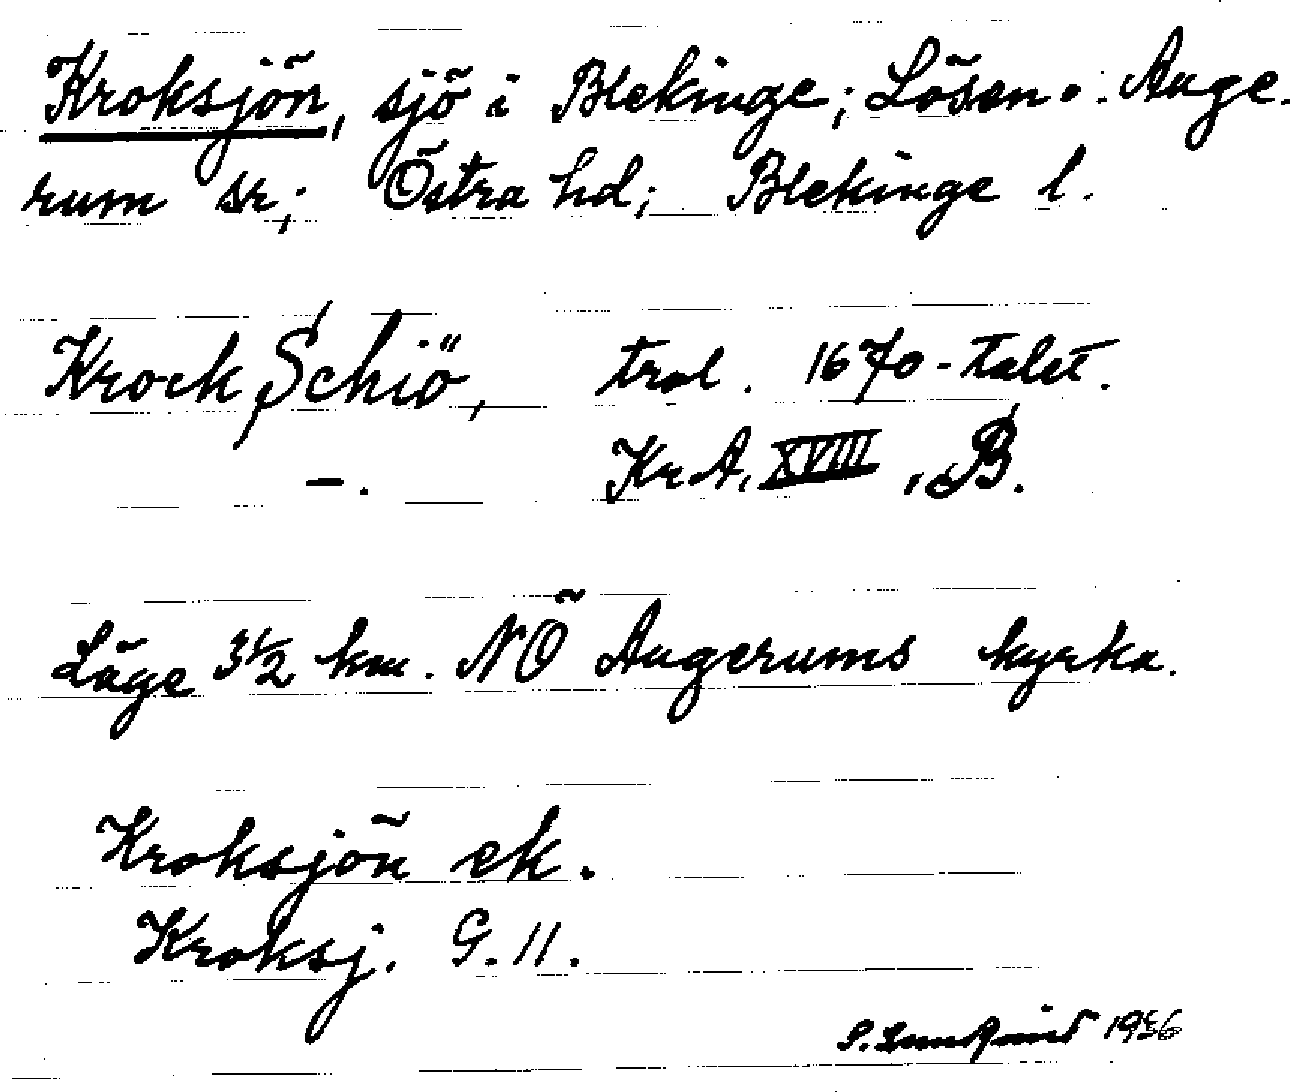 Kroksjön, sjö i Blekinge; Lösen o. Auge-
rum sr; Östra hd; Blekinge l.
Krock Schiö, trol. 1670-talet.
—. KrA, XVIII, B.
Läge 3 1/2 km. NÖ Augerums kyrka.
Kroksjön ek.
Kroksj. G. 11.
S. Lundqvist 1936